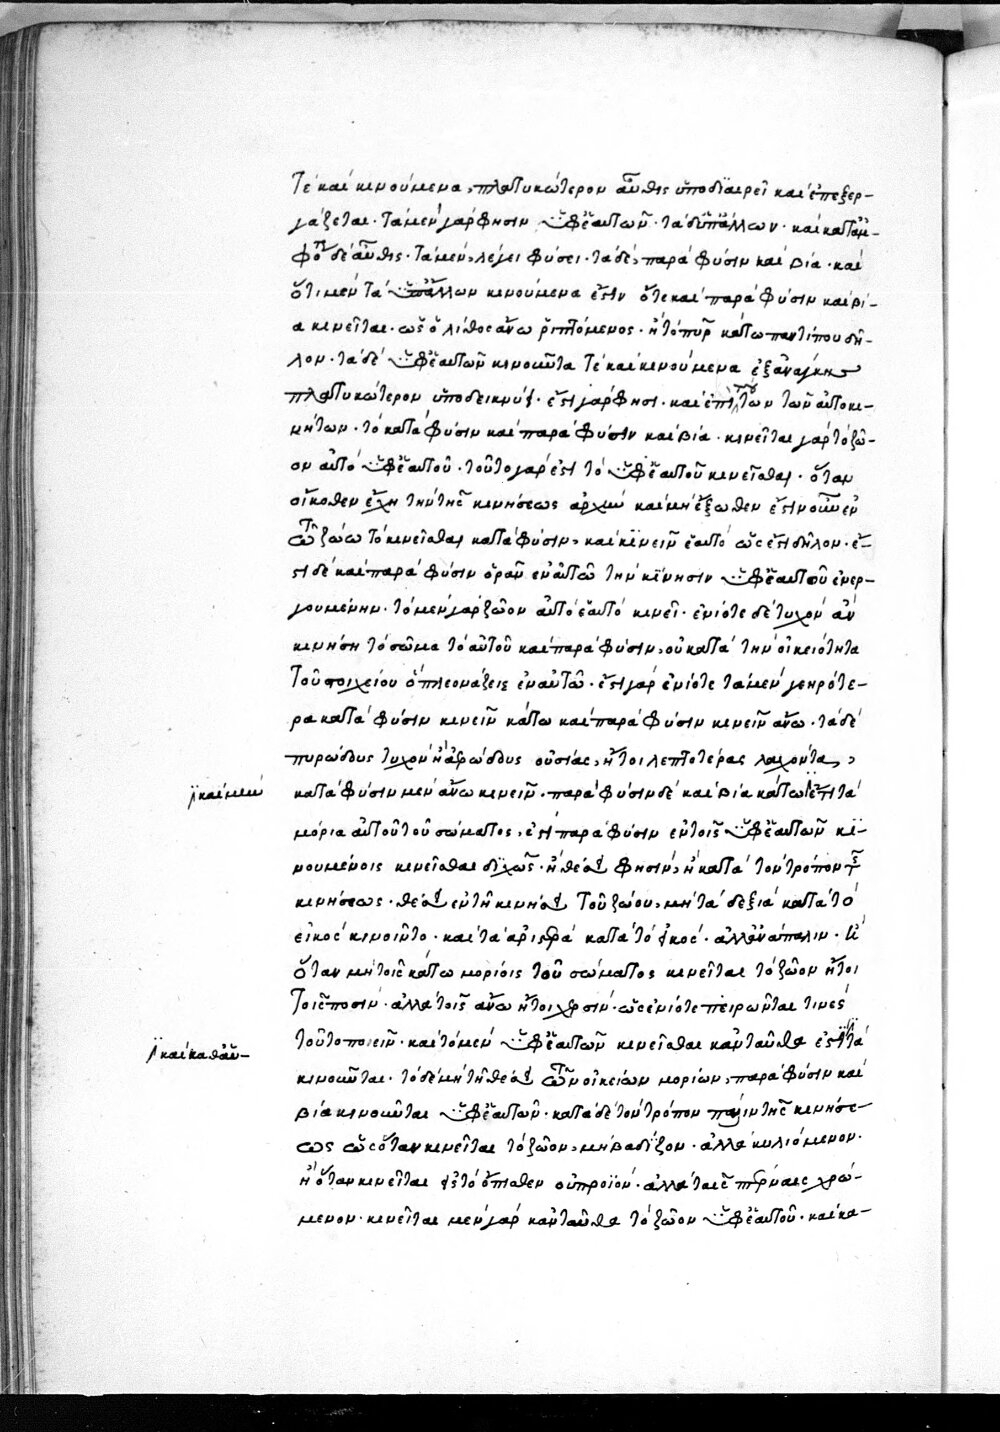 τὲ καὶ κινούμενα, πλατυκώτερον αὖθις ὑποδιαιρεῖ καὶ ἐπεξερ-
γάζεται· τὰ μὲν γάρ φησιν ὑφ' ἑαυτῶν· τὰ δ' ὑπ' ἄλλων· καὶ κατ' ἀμ-
φοῖν δὲ αὖθις· τὰ μὲν, λέγει φύσει· τὰ δὲ, παρὰ φύσιν καὶ βία· καὶ
ὅτι μὲν τὰ ὑπ' ἄλλων κινούμενα ἔστιν ὅτε καὶ παρὰ φύσιν καὶ βί-
α κινεῖται· ὡς ὁ λίθος ἄνω ῥιπτόμενος· ἢ τὸ πῦρ κάτω παντί που δῆ-
λον· τὰ δὲ ὑφ' ἑαυτῶν κινοῦντα τὲ καὶ κινούμενα ἐξ ἀνάγκης
πλατυκώτερον ὑποδείκνυσι· ἔστι γάρ φησι· καὶ ἐπὶ τούτων τῶν αὐτοκι-
νήτων· τὸ κατὰ φύσιν καὶ παρὰ φύσιν καὶ βία· κινεῖται γὰρ τὸ ζῶ-
ον αὐτὸ ὑφ' ἑαυτοῦ· τοῦτο γάρ ἐστι τὸ ὑφ' ἑαυτοῦ κινεῖσθαι· ὅταν
οἴκοθεν ἔχη τὴν τῆς κινήσεως ἀρχὴν καὶ μὴ ἔξωθεν ἔστιν οὖν ἐν
τῶ ζώω τὸ κινεῖσθαι κατὰ φύσιν, καὶ κινεῖν ἑαυτό ὥς ἐστι δῆλον· ἔ-
στι δὲ καὶ παρὰ φύσιν ὁρᾶν ἐν αὐτῶ τὴν κίνησιν ὑφ' ἑαυτοῦ ἐνερ-
γουμένην· τὸ μὲν γὰρ ζῶον αὐτὸ ἑαυτὸ κινεῖ· ἐνίοτε δὲ τυχὸν ἂν
κινήση τὸ σῶμα τὸ αὑτοῦ καὶ παρὰ φύσιν, οὐ κατὰ τὴν οἰκειότητα
τοῦ στοιχείου ὃ πλεονάζεις ἐν αὐτῶ· ἔστι γὰρ ἐνίοτε τὰ μὲν γεηρότε-
ρα κατὰ φύσιν κινεῖν κάτω καὶ παρὰ φύσιν κινεῖν ἄνω· τὰ δὲ
πυρώδους τυχὸν ἢ ἀερώδους οὐσίας, ἤτοι λεπτοτέρας λαχόντα,
κατὰ φύσιν μὲν ἄνω κινεῖν· παρὰ φύσιν δὲ καὶ βία κάτω ἔπειτα
ἢ καὶ μὴν
μόρια αὐτοῦ τοῦ σώματος, ἔστι παρὰ φύσιν ἐν τοῖς ὑφ' ἑαυτῶν κι-
νουμένοις κινεῖσθαι διχῶς· ἢ θέσει φησὶν, ἢ κατὰ τὸν τρόπον τῆς
κινήσεως· θέσει ἐν τῆ κινήσει τοῦ ζώου, μὴ τὰ δεξιὰ κατὰ τὸ
εἰκὸς κινοῖντο· καὶ τὰ ἀριστερὰ κατὰ τὸ εἰκός· ἀλλ' ἀνάπαλιν· ἢ
ὅταν μὴ τοῖς κάτω μορίοις τοῦ σώματος κινεῖται τὸ ζῶον ἤτοι
τοῖς ποσίν· ἀλλὰ τοῖς ἄνω ἤτοι χερσίν· ὡς ἐνίοτε πειρῶνται τινὲς
τοῦτο ποιεῖν· καὶ τὸ μὲν ὑφ' ἑαυτῶν κινεῖσθαι κἀνταῦθα ἐστὶ τὰ
καὶ καθ' ἃ ἂν-
κινοῦνται· τὸ δὲ μὴ τῆ θέσει τῶν οἰκείων μορίων, παρὰ φύσιν καὶ
βία κινοῦνται ὑφ' ἑαυτῶν· κατὰ δὲ τὸν τρόπον πάλιν τῆς κινήσε-
ως ὡς ὅταν κινεῖται τὸ ζῶον, μὴ βαδίζον· ἀλλὰ κυλιόμενον·
ἢ ὅταν κινεῖται εἰς τὸ ὄπισθεν οὐ προϊόν· ἀλλὰ ταῖς πτέρναις χρώ-
μενον· κινεῖται μὲν γὰρ κἀνταῦθα τὸ ζῶον ὑφ' ἑαυτοῦ· καὶ κα-